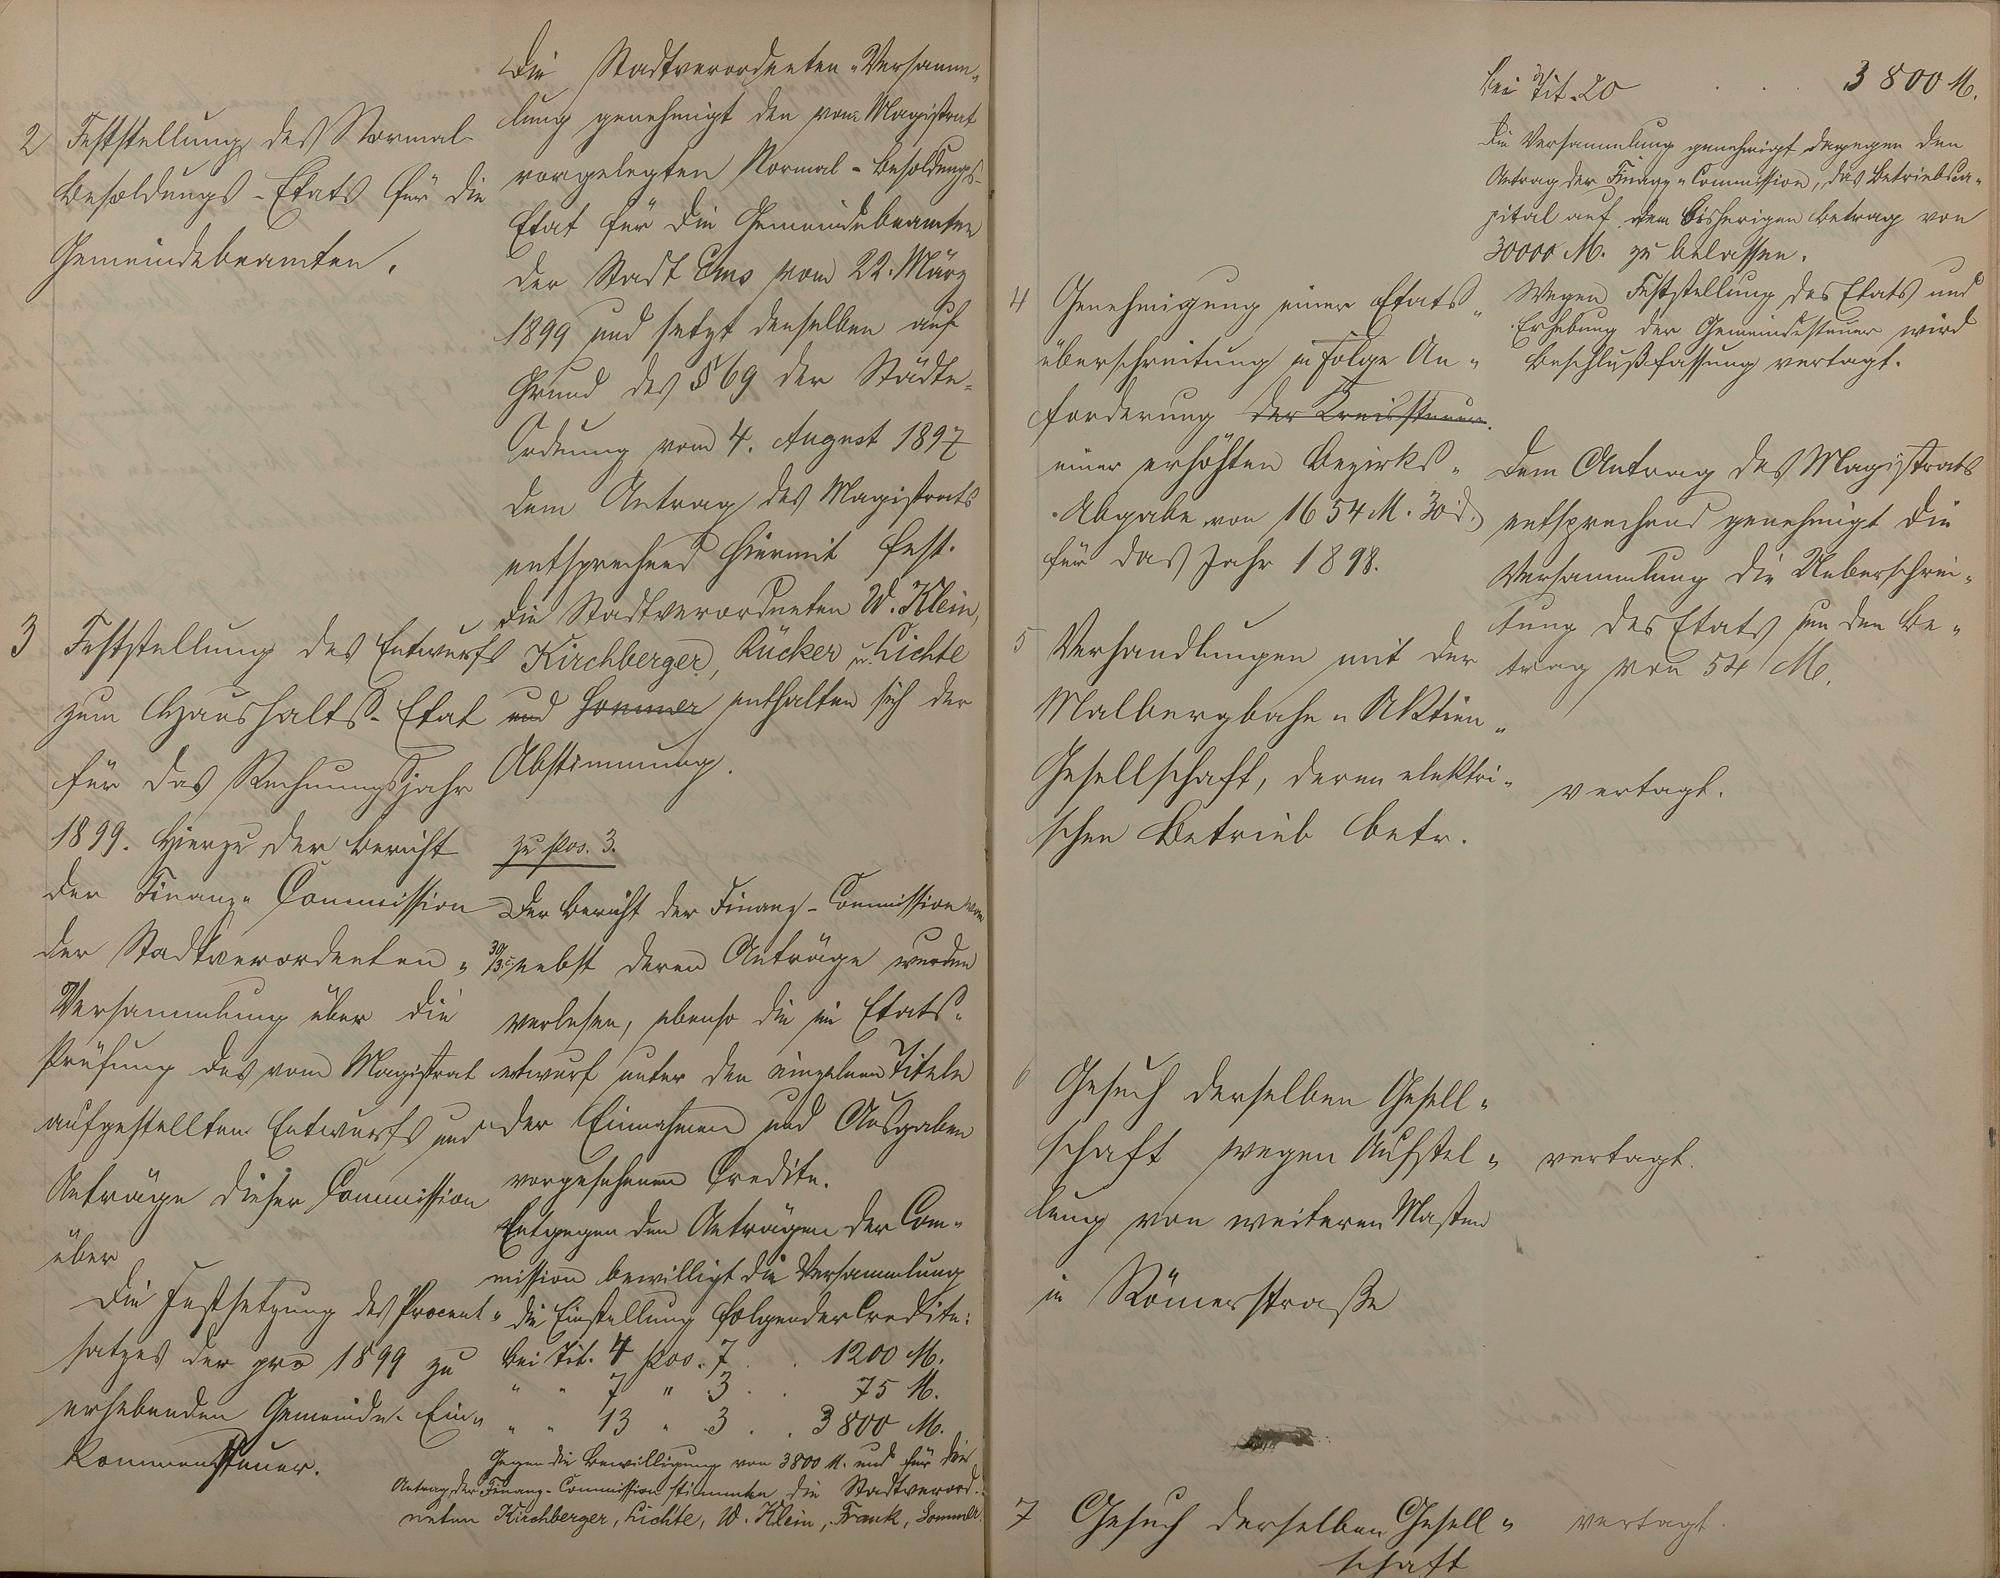 2 Feststellung des Normal-
Besoldungs-Etats für die
Gemeindebeamten.
Die Stadtverordneten-Versamm-
lung genehmigt den vom Magistrat
vorgelegten Normal-Besoldungs-
Etat für die Gemeindebeamten
der Stadt Ems vom 22. März
1899 und setzt denselben auf
Grund des § 69 der Städte-
Ordnung vom 4. August 1897
dem Antrag des Magistrats
entsprechend hiermit fest.
Die Stadtverordneten W. Klein,
Kirchberger, Rücker u. Lichte
und Sommer enthalten sich der
Abstimmung.
3 Feststellung des Entwurfs
zum Haushalts-Etat
für das Rechnungsjahr
1899. Hierzu der Bericht
der Finanz-Commission
der Stadtverordneten-
Versammlung über die
Prüfung des vom Magistrat
aufgestellten Entwurfs und
Anträge dieser Commission
über
Die Festsetzung des Procent-
satzes der pro 1899 zu
erhebenden Gemeinde-Ein-
kommensteuer.
zu pos. 3.
Der Bericht der Finanz-Commission vom
30/3 nebst deren Anträge wurden
verlesen, ebenso die im Etats-
entwurf unter den einzelnen Titeln
der Einnahmen und Ausgaben
vorgesehenen Credite.
Entgegen den Anträgen der Com-
mission bewilligt die Versammlung
die Einstellung folgender Credite:
bei Tit. 4 pos. 7 . . 1200 M.
" " 7 " 3 . . 75 M.
" " 13 " 3 . . 3800 M.
Gegen die Bewilligung von 3800 M. und für den
Antrag der Finanz-Commission stimmten die Stadtverord-
neten Kirchberger, Lichte, W. Klein, Frank, Sommer.
bei Tit. 20 . . . 3800 M.
Die Versammlung genehmigt dagegen den
Antrag der Finanz-Commission, das Betriebsca-
pital auf dem bisherigen Betrag von
30000 M. zu belassen.
Wegen Feststellung des Etats und
Erhebung der Gemeindesteuer wird
Beschlußfassung vertagt.
4 Genehmigung einer Etats-
überschreitung in Folge An-
forderung der Kreissteuer.
einer erhöhten Bezirks-
Abgabe von 1654 M. 30 d.
für das Jahr 1898.
Dem Antrag des Magistrats
entsprechend genehmigt die
Versammlung die Ueberschrei-
tung des Etats um den Be-
trag von 54 M.
5 Verhandlungen mit der
Malbergbahn-Aktien-
Gesellschaft, deren elektri-
schen Betrieb betr.
vertagt.
6 Gesuch derselben Gesell-
schaft wegen Aufstel-
lung von weiteren Masten
in Römerstraße
vertagt.
7 Gesuch derselben Gesell-
schaft
vertagt.